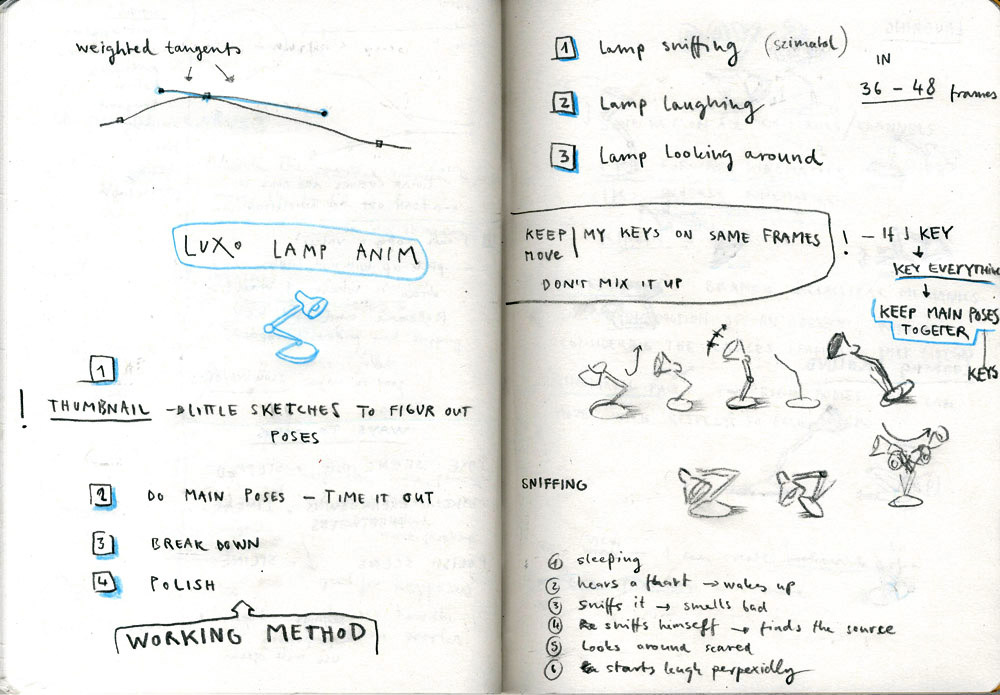 weighted tangents
LUXO LAMP ANIM
1
! THUMBNAIL → LITTLE SKETCHES TO FIGUR OUT
POSES
2 DO MAIN POSES – TIME IT OUT
3 BREAK DOWN
4 POLISH
WORKING METHOD
1 Lamp sniffing (szimatol)
2 Lamp laughing
3 Lamp looking around
IN
36 – 48 frames
KEEP | MY KEYS ON SAME FRAMES
MOVE
DON'T MIX IT UP
! – If I KEY
KEY EVERYTHING
KEEP MAIN POSES
TOGETER
KEYS
SNIFFING
1 sleeping
2 hears a fhart → wakes up
3 sniffs it → smells bad
4 sniffs himself → finds the sourse
5 Looks around scared
6 starts laugh perpexidly